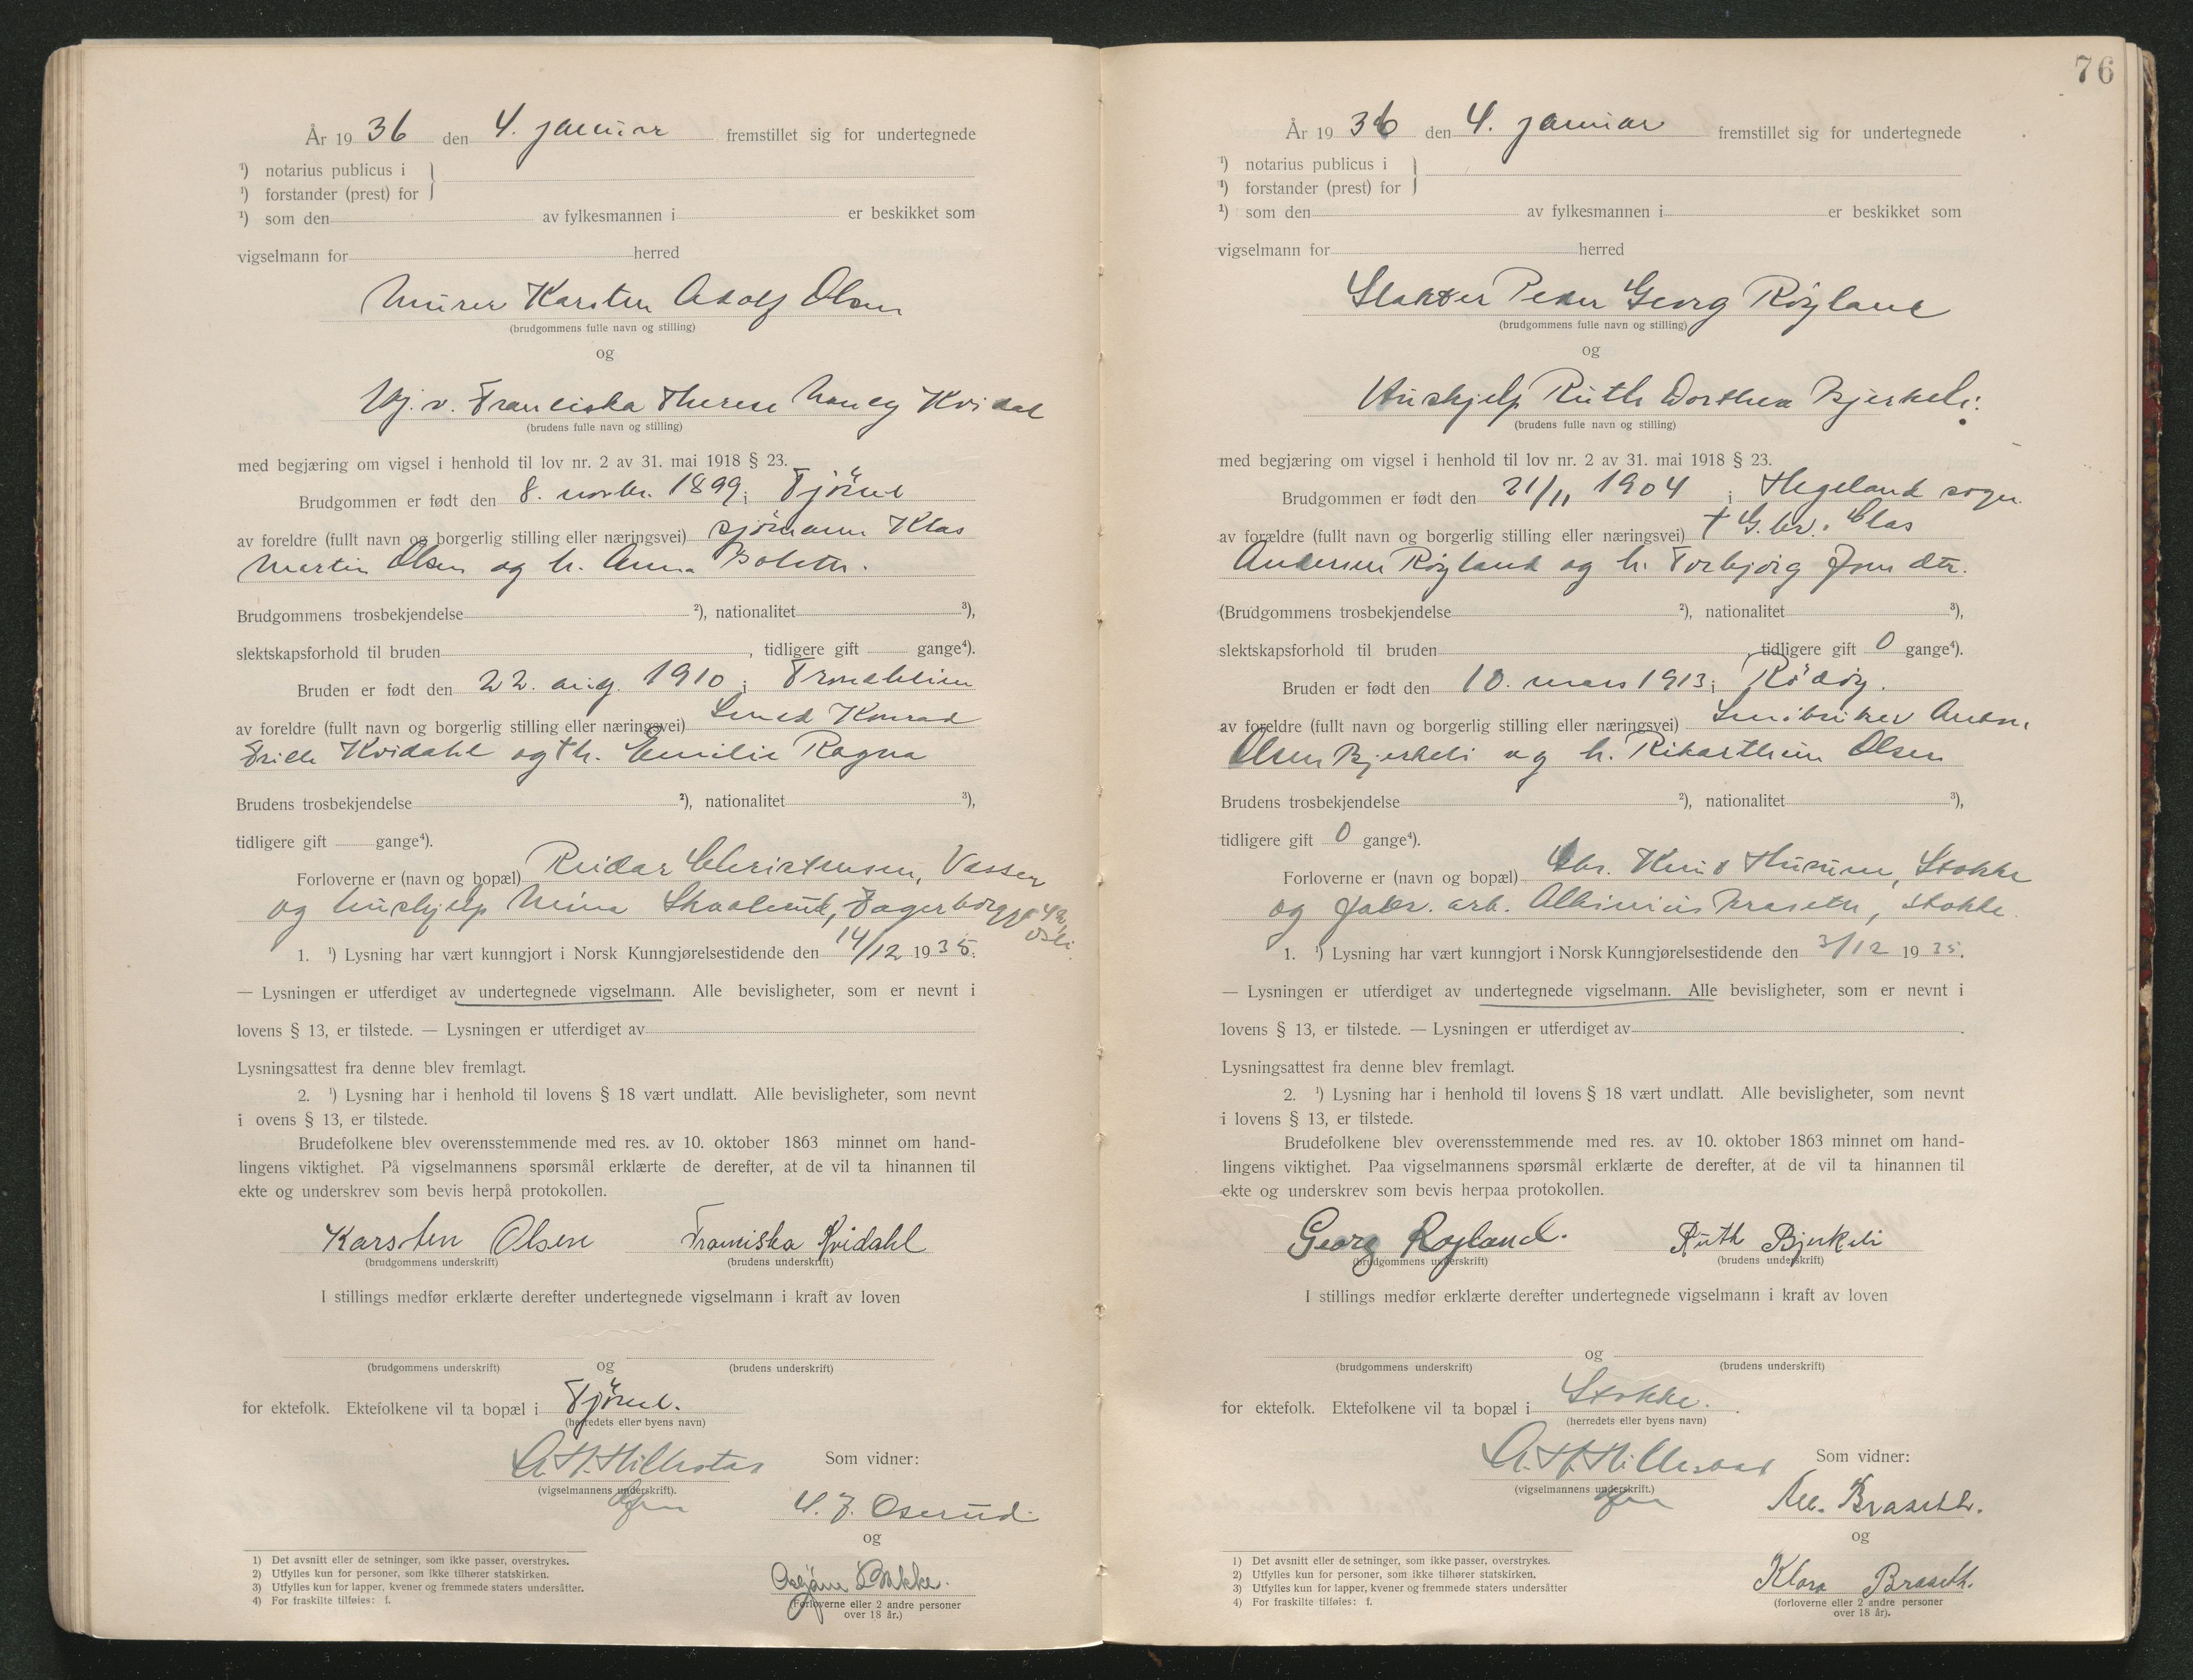 År 1936 den 4. januar fremstillet sig for undertegnede
¹) notarius publicus i
¹) forstander (prest) for
¹) som den av fylkesmannen i er beskikket som
vigselmann for herred
Murer Karsten Adolf Olsen
(brudgommens fulle navn og stilling)
og
Franciska Therese Nancy Kvidal
(brudens fulle navn og stilling)
med begjæring om vigsel i henhold til lov nr. 2 av 31. mai 1918 § 23.
Brudgommen er født den 8. novbr. 1899 i Tjöme
av foreldre (fullt navn og borgerlig stilling eller næringsvei) sjömann Klas
Martin Olsen og h. Anna
Brudgommens trosbekjendelse ²), nationalitet ³),
slektskapsforhold til bruden , tidligere gift gange⁴).
Bruden er født den 22. aug. 1910 i Trondheim
av foreldre (fullt navn og borgerlig stilling eller næringsvei) Smed Konrad
Kvidahl og † h. Emilie Ragna
Brudens trosbekjendelse ²), nationalitet ³),
tidligere gift gange⁴).
Forloverne er (navn og bopæl) Reidar Christensen, Vasser
og hushjelp Mina Fagerborggt 42, Oslo.
1. ¹) Lysning har vært kunngjort i Norsk Kunngjørelsestidende den 14/12 1935.
— Lysningen er utferdiget av undertegnede vigselmann. Alle bevisligheter, som er nevnt i
lovens § 13, er tilstede. — Lysningen er utferdiget av
Lysningsattest fra denne blev fremlagt.
2. ¹) Lysning har i henhold til lovens § 18 vært undlatt. Alle bevisligheter, som nevnt
i ovens § 13, er tilstede.
Brudefolkene blev overensstemmende med res. av 10. oktober 1863 minnet om hand-
lingens viktighet. På vigselmannens spørsmål erklærte de derefter, at de vil ta hinannen til
ekte og underskrev som bevis herpå protokollen.
Karsten Olsen Franciska Kvidahl
(brudgommens underskrift) (brudens underskrift)
I stillings medfør erklærte derefter undertegnede vigselmann i kraft av loven
og
(brudgommens underskrift) (brudens underskrift)
for ektefolk. Ektefolkene vil ta bopæl i Tjöme.
(herredets eller byens navn)
A. H. Hillestad Som vidner:
(vigselmannens underskrift).
Oserud
og
Asbjørn Bakke.
(Forloverne eller 2 andre personer
over 18 år.)
1) Det avsnitt eller de setninger, som ikke passer, overstrykes.
2) Utfylles kun for personer, som ikke tilhører statskirken.
3) Utfylles kun for lapper, kvener og fremmede staters undersåtter.
4) For fraskilte tilføies: f.
76
År 1936 den 4. januar fremstillet sig for undertegnede
¹) notarius publicus i
¹) forstander (prest) for
¹) som den av fylkesmannen i er beskikket som
vigselmann for herred
Slakter Peder Georg Röyland
(brudgommens fulle navn og stilling)
og
Hushjelp Ruth Dorthea Bjerkeli.
(brudens fulle navn og stilling)
med begjæring om vigsel i henhold til lov nr. 2 av 31. mai 1918 § 23.
Brudgommen er født den 21/11 1904 i Hegeland sogn
av forældre (fullt navn og borgerlig stilling eller næringsvei) † G.br. Clas
Andersen Röyland og h. Torbjörg Jonsdtr.
(Brudgommens trosbekjendelse ²), nationalitet ³),
slektskapsforhold til bruden , tidligere gift 0 gange⁴).
Bruden er født den 10. mars 1913 i Rödöy.
av foreldre (fullt navn og borgerlig stilling eller næringsvei) Småbruker Anton
Olsen Bjerkeli og h. Olsen
Brudens trosbekjendelse ²), nationalitet ³),
tidligere gift 0 gange⁴).
Forloverne er (navn og bopæl) Gbr. Knut Husum, Stokke
og fabr. arb. Albinius Braseth, Stokke.
1. ¹) Lysning har vært kunngjort i Norsk Kunngjørelsestidende den 3/12 1935.
— Lysningen er utferdiget av undertegnede vigselmann. Alle bevisligheter, som er nevnt i
lovens § 13, er tilstede. — Lysningen er utferdiget av .
Lysningsattest fra denne blev fremlagt.
2. ¹) Lysning har i henhold til lovens § 18 vært undlatt. Alle bevisligheter, som nevnt
i lovens § 13, er tilstede.
Brudefolkene blev overensstemmende med res. av 10. oktober 1863 minnet om hand-
lingens viktighet. Paa vigselmannens spørsmål erklærte de derefter, at de vil ta hinannen til
ekte og underskrev som bevis herpaa protokollen.
Georg Røyland. Ruth Bjerkeli
(brudgommens underskrift) (brudens underskrift)
I stillings medfør erklærte derefter undertegnede vigselmann i kraft av loven
og
(brudgommens underskrift) (brudens underskrift)
for ektefolk. Ektefolkene vil ta bopæl i Stokke.
(herredets eller byens navn)
A. H. Hillestad Som vidner:
(vigselmannens underskrift.)
Braseth.
og
Klara Braseth.
(forloverne eller 2 andre personer
over 18 år).
1) Det avsnitt eller de setninger, som ikke passer, overstrykes.
2) Utfylles kun for personer, som ikke tilhører statskirken.
3) Utfylles kun for lapper, kvener og fremmede staters undersåtter
4) For fraskilte tilføies: f.